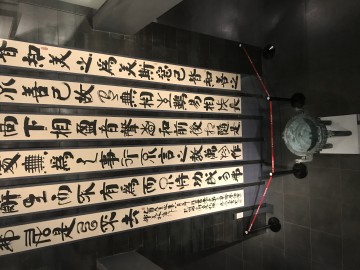 皆知美之為美斯惡已皆知善之
不善已故有無相生難易相成長
高下相盈音聲相和前後相隨是
處無為之事行不言之教萬物作
辭生而不有為而不恃功成而弗
弗居是以不去